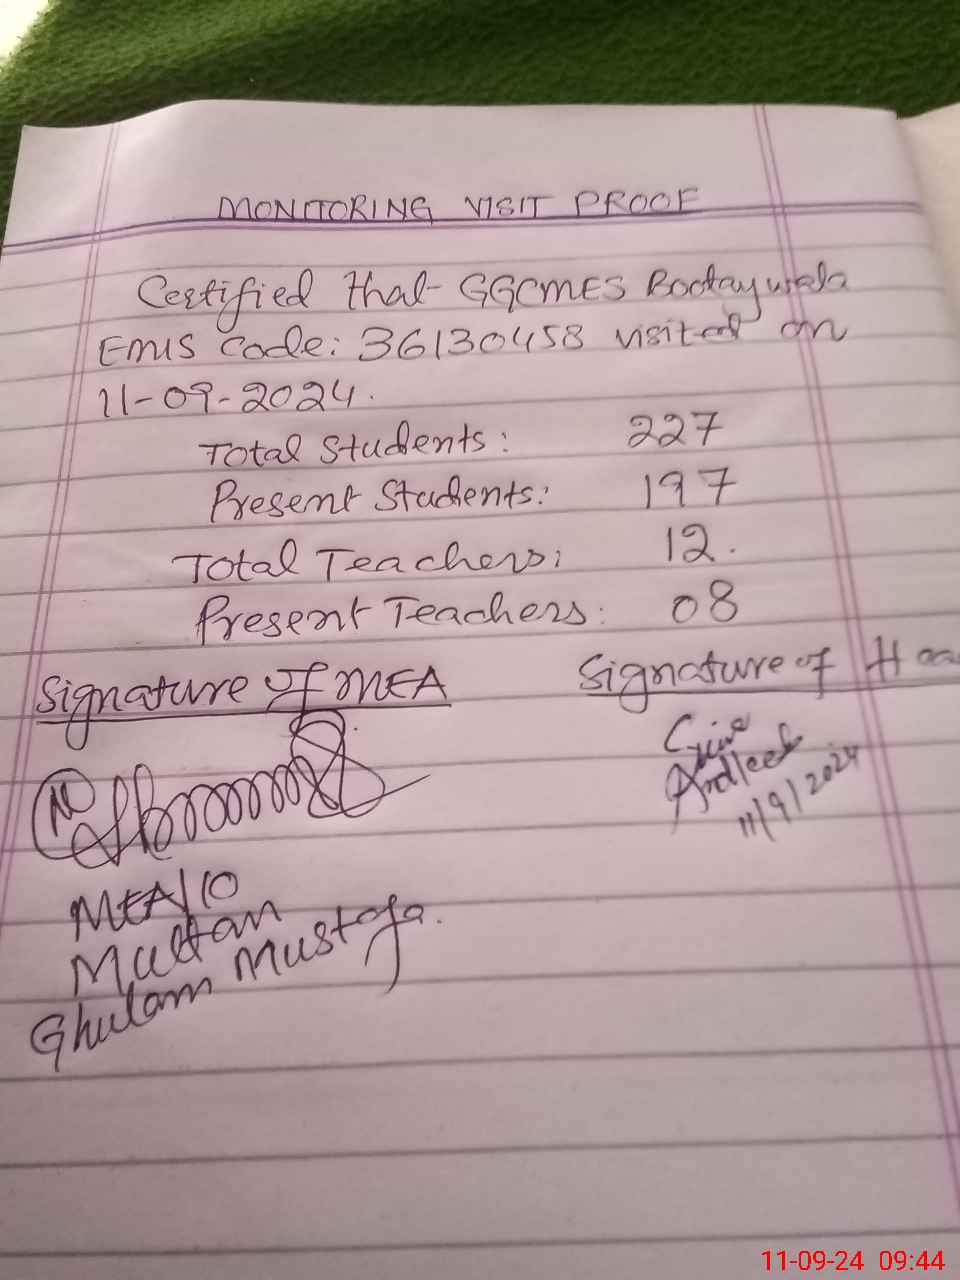 MONITORING VISIT PROOF
Certified that GGCMES Bootaywala
EMIS Code: 36130458 visited on
11-09-2024.
Total Students: 227
Present Students: 197
Total Teachers: 12.
Present Teachers: 08
Signature of MEA Signature of Hea
11/9/2024
MEA/10
Multan
Ghulam Mustafa.
11-09-24 09:44